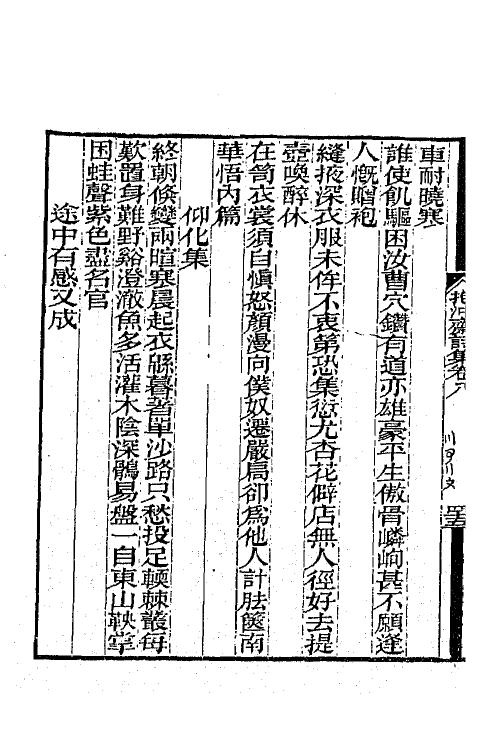 車耐曉寒
誰使飢驅困汝曹穴鑽有道亦雄豪平生傲骨嶙峋甚不願逢
人慨贈袍
縫掖深衣服未侔不衷第恐集愆尤杏花僻店無人徑好去提
壺喚醉休
在笥衣裳須自愼怒顏漫向僕奴遷嚴扃卻爲他人計胠篋南
華悟內篇
仰化集
終朝倏變兩暄寒晨起衣緜暮著單沙路只愁投足輭棘叢每
歎置身難野谿澄澈魚多活灌木陰深鶻易盤一自東山鞅掌
困蛙聲紫色盡名官
途中有感又成
詩集卷八